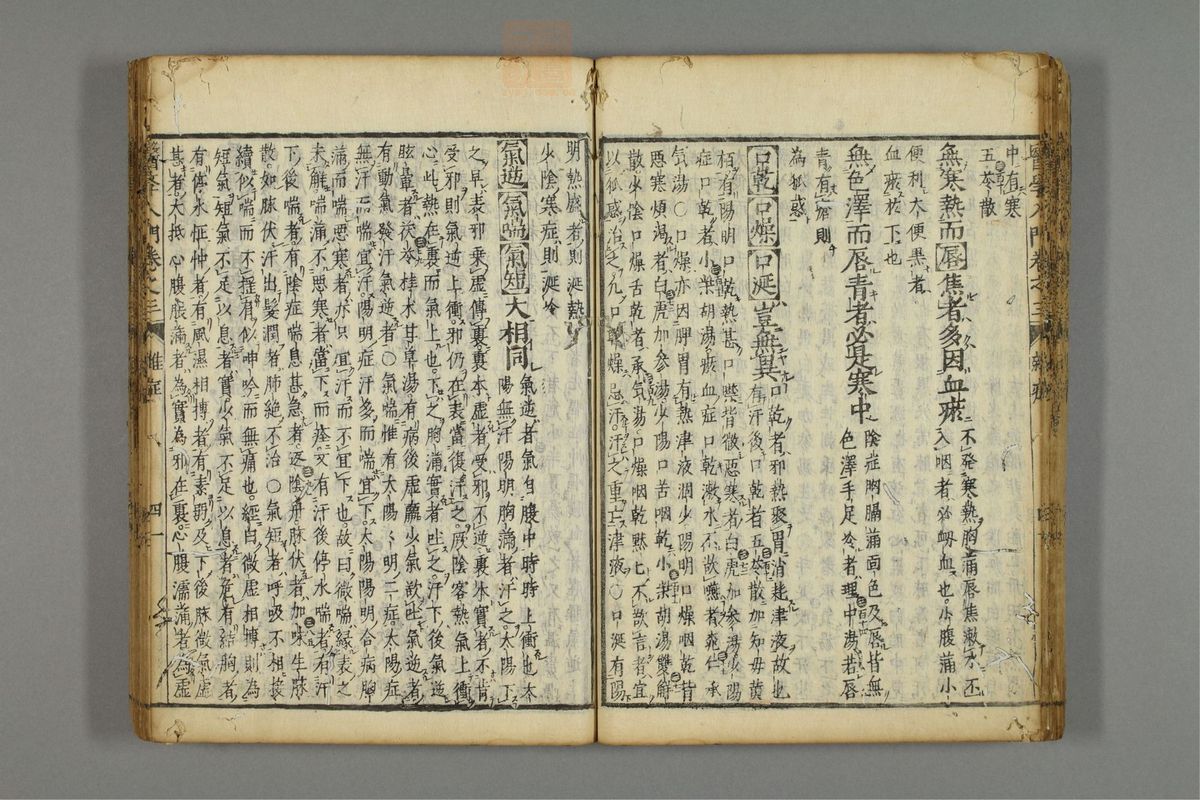 中有寒
五苓散
無寒熱而唇焦者多因血瘀
不發寒熱胸滿唇焦漱水不
入咽者必衄血也小腹滿小
便利大便黑者
血瘀在下也
無色澤而唇青者必是寒中
陰症胸膈滿面色及唇皆無
色澤手足冷者理中湯若唇
青有瘡則
為狐惑
口乾口燥口涎豈無異
口乾者邪熱聚胃消耗津液故也
有汗後口乾者五苓散加知母黃
栢有陽明口乾熱甚口
背微惡寒者白虎加參湯少陽
症口乾者小柴胡湯瘀血症口乾漱水不欲嚥者桃仁承
氣湯〇口燥亦因脾胃有熱津液潤少陽明口燥咽乾背
惡寒煩渴者白虎加參湯少陽口苦咽乾小柴胡湯
散少陰口燥舌乾者承氣湯口燥咽乾默匕不欲言者宜
以狐惑治之允口乾燥忌汗汗之重亡津液〇口涎有陽
明熱盛者則涎熱
少陰寒症則涎冷
氣逆氣喘氣短大相同
氣逆者氣自腹中時時上衝也本
陽無汗陽明胸滿者汗之太陽下
之早表邪乘虛傳裏裏本虛者受邪不逆裏本實者不肯
受邪則氣逆上衝邪仍在表當復汗之厥陰客熱氣上衝
心此熱在裏而氣上也下之胸滿實者吐之汗下後氣逆
眩暈者茯苓桂朮甘草湯有病後虛羸少氣欲吐氣逆者
有動氣發汗氣逆者〇氣喘惟有太陽陽明二症太陽症
無汗而喘宜汗陽明症汗多而喘宜下太陽陽明合病胸
滿而喘惡寒者亦只宜汗而不宜下也故曰微喘緣表之
未解喘滿不惡寒者當下而痊又有汗後停水喘者有汗
下後喘者有陰症喘息甚急者返陰丹脉伏者加味生脉
散如脉伏汗出髮潤者肺絕不治〇氣短者呼吸不相接
續似喘而不搖肩似呻吟而無痛也經曰微虛相搏則為
短氣短氣不足以息者實少氣不足以息者危有結胸者
有停水怔忡者有風濕相搏者有素弱及下後脉微氣虛
甚者大抵心腹脹滿者為實為邪在裏心腹濡滿者為虛